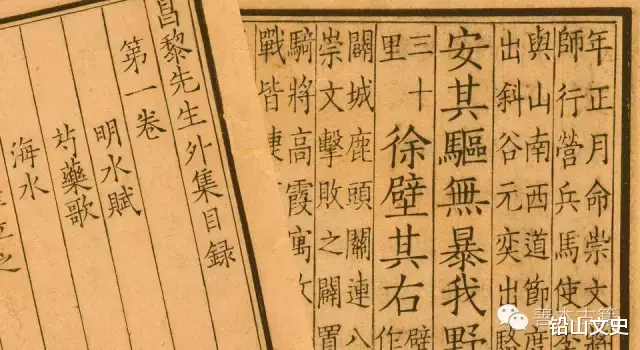 年正月命崇文
師行營兵馬使李
與山南西道節度
出斜谷元奕出駱
安其驅無暴我野
三十里徐壁其右
闢城鹿頭關連八
崇文擊敗之闢置
騎將高霞寓攻
戰皆
昌黎先生外集目録
第一卷
明水賦
芍藥歌
海水
铅山文史